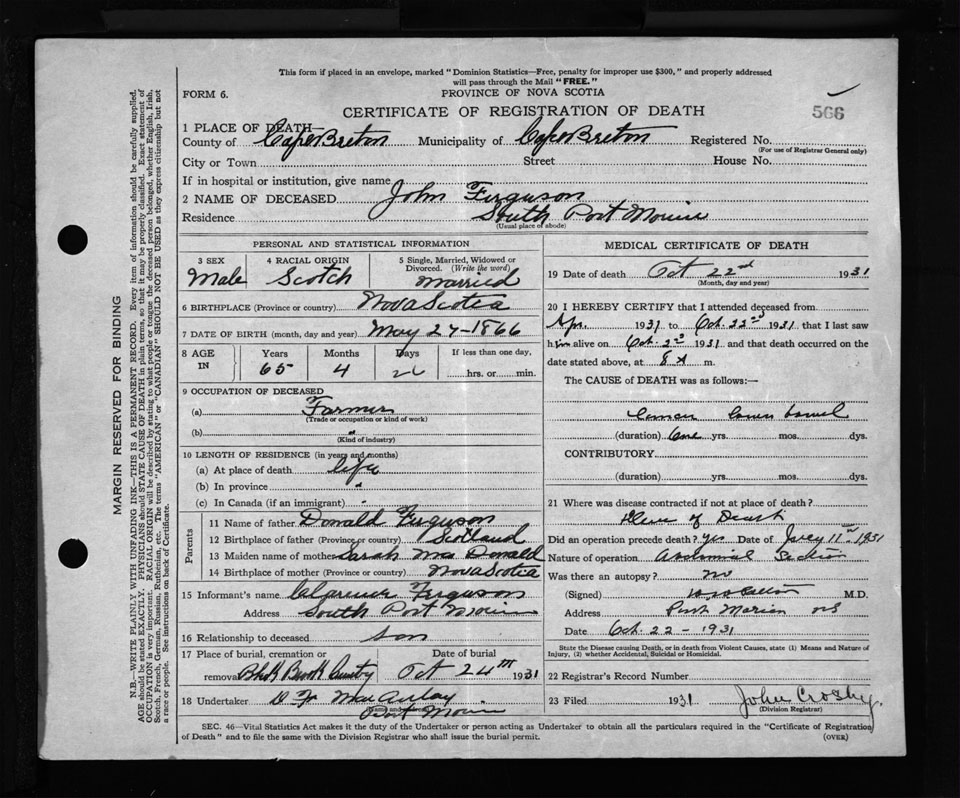 This form if placed in an envelope, marked "Dominion Statistics—Free, penalty for improper use $300," and properly addressed
will pass through the Mail "FREE."
FORM 6.
PROVINCE OF NOVA SCOTIA
CERTIFICATE OF REGISTRATION OF DEATH
566
1 PLACE OF DEATH—
County of Cape Breton Municipality of Cape Breton Registered No.
(For use of Registrar General only)
City or Town Street House No.
If in hospital or institution, give name
2 NAME OF DECEASED John Ferguson
Residence South Port Morien
(Usual place of abode)
PERSONAL AND STATISTICAL INFORMATION
3 SEX
Male
4 RACIAL ORIGIN
Scotch
5 Single, Married, Widowed or
Divorced. (Write the word)
Married
6 BIRTHPLACE (Province or country) Nova Scotia
7 DATE OF BIRTH (month, day and year) May 27-1866
8 AGE
IN
Years
65
Months
4
Days
If less than one day,
hrs. or min.
9 OCCUPATION OF DECEASED
(a) Farmer
(Trade or occupation or kind of work)
(b) "
(Kind of industry)
10 LENGTH OF RESIDENCE (in years and months)
(a) At place of death life
(b) In province "
(c) In Canada (if an immigrant) "
Parents
11 Name of father Donald Ferguson
12 Birthplace of father (Province or country) Scotland
13 Maiden name of mother Sarah MacDonald
14 Birthplace of mother (Province or country) Nova Scotia
15 Informant's name Clarence Ferguson
Address South Port Morien
16 Relationship to deceased son
17 Place of burial, cremation or
removal Brook
Date of burial
Oct 24th 1931
18 Undertaker MacAulay
(Name and address)
Port Morien
MEDICAL CERTIFICATE OF DEATH
19 Date of death Oct 22nd 1931
(Month, day and year)
20 I HEREBY CERTIFY that I attended deceased from
Apr. 1931 to Oct. 22nd 1931 that I last saw
him alive on Oct. 2nd 1931 and that death occurred on the
date stated above, at 8 A m.
The CAUSE of DEATH was as follows:—
Cancer bowel
(duration) One yrs. mos. dys.
CONTRIBUTORY
(duration) yrs. mos. dys.
21 Where was disease contracted if not at place of death?
Place of Death
Did an operation precede death? yes Date of July 11th 1931
Nature of operation Abdominal Section
Was there an autopsy? no
(Signed) M.D.
Address Port Morien NS
Date Oct. 22-1931
State the Disease causing Death, or in death from Violent Causes, state (1) Means and Nature of
Injury, (2) whether Accidental, Suicidal or Homicidal.
22 Registrar's Record Number
23 Filed 1931 John Crosby
(Division Registrar)
SEC. 46—Vital Statistics Act makes it the duty of the Undertaker or person acting as Undertaker to obtain all the particulars required in the "Certificate of Registration
of Death" and to file the same with the Division Registrar who shall issue the burial permit.
(OVER)
MARGIN RESERVED FOR BINDING
N.B.—WRITE PLAINLY, WITH UNFADING INK—THIS IS A PERMANENT RECORD. Every item of information should be carefully supplied.
AGE should be stated EXACTLY. PHYSICIANS should STATE CAUSE OF DEATH in plain terms, so that it may be properly classified. Exact statement of
OCCUPATION is very important. RACIAL ORIGIN will be described by stating to what people or tongue the deceased person belonged, whether English, Irish,
Scotch, French, German, Russian, Ruthenian, etc. The terms "AMERICAN" or "CANADIAN" SHOULD NOT BE USED as they express citizenship but not
a race or people. See instructions on back of Certificate.